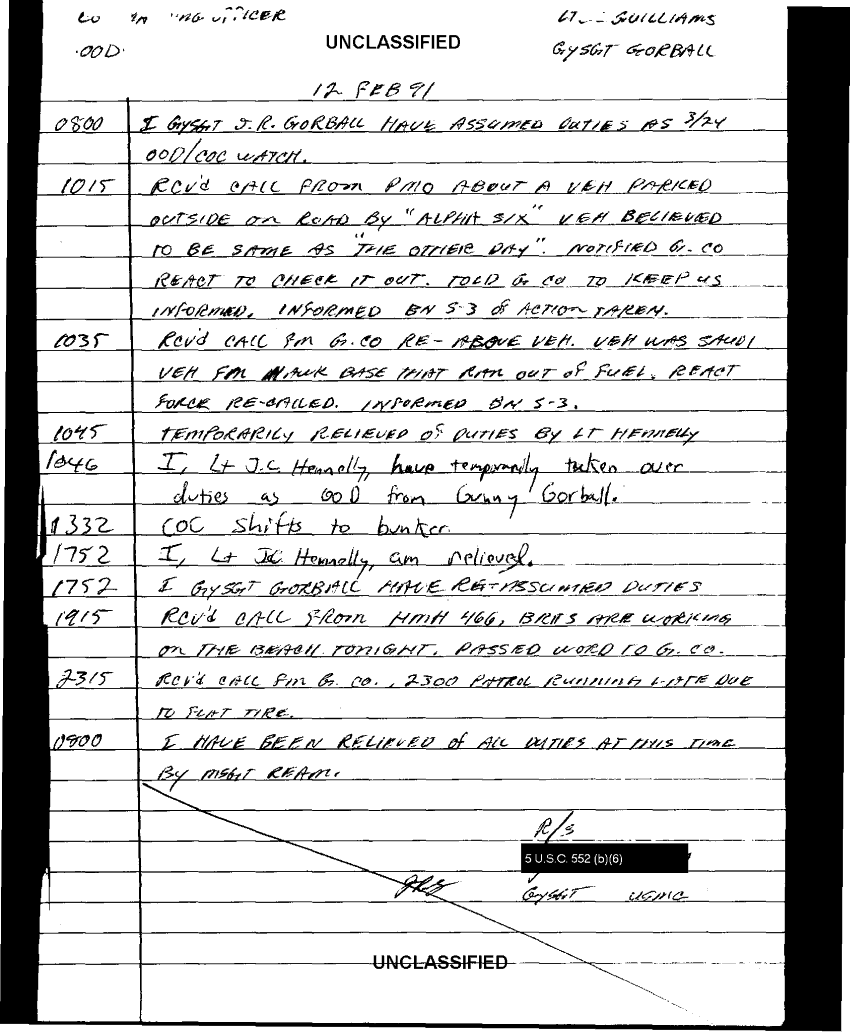 OFFICER LT GUILLIAMS
UNCLASSIFIED
OOD GYSGT GORBALL
12 FEB 91
0800 I GYSGT J.R. GORBALL HAVE ASSUMED DUTIES AS 3/24
OOD/COC WATCH.
1015 RCV'D CALL FROM PMO ABOUT A VEH PARKED
OUTSIDE ON ROAD BY "ALPHA SIX" VEH BELIEVED
TO BE SAME AS "THE OTHER DAY". NOTIFIED G. CO
REACT TO CHECK IT OUT. TOLD G. CO TO KEEP US
INFORMED. INFORMED BN S-3 of ACTION TAKEN.
1035 RCV'D CALL FM G. CO RE- ABOVE VEH. VEH WAS SAUDI
VEH FM HAWK BASE THAT RAN OUT of FUEL. REACT
FORCE RE-CALLED. INFORMED BN S-3.
1045 TEMPORARILY RELIEVED OF DUTIES BY LT HENNELLY
1046 I, Lt J.C. Hennelly, have temporarily taken over
duties as OOD from Gunny Gorball.
1332 COC shifts to bunker.
1752 I, Lt J.C. Hennelly, am relieved.
1752 I GYSGT GORBALL HAVE RE-ASSUMED DUTIES
1915 RCV'D CALL FROM HMH 466, BRITS ARE WORKING
ON THE BEACH TONIGHT. PASSED WORD TO G. CO.
2315 RCV'D CALL FM G. CO., 2300 PATROL RUNNING LATE DUE
TO FLAT TIRE.
0800 I HAVE BEEN RELIEVED of ALL DUTIES AT THIS TIME
BY MSGT REAM.
R/S
5 U.S.C. 552 (b)(6)
JRG GYSGT USMC
UNCLASSIFIED